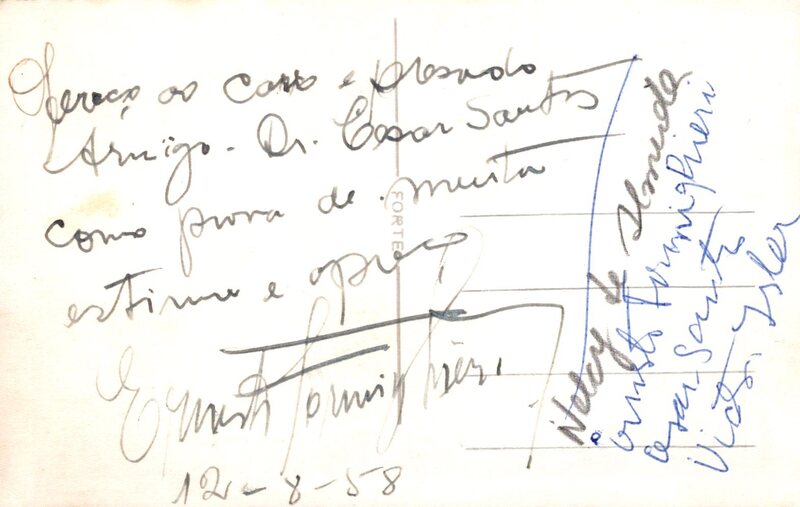 Ofereço ao caro e presado
Amigo - Dr. Cesar Santos
como prova de muita
estima e apreço
Ernesto Formighieri
12 - 8 - 58
FORTE
Nelcy de Almeida
Ernesto Formighieri
Cesar Santos
Victor Isler